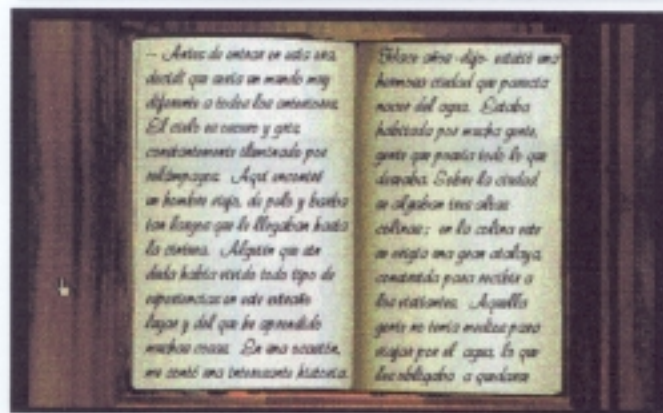 — Antes de entrar en esta era,
decidí que sería un mundo muy
diferente a todos los anteriores.
El cielo es oscuro y gris,
constantemente iluminado por
relámpagos. Aquí encontré
un hombre viejo, de pelo y barba
tan largos que le llegaban hasta
la cintura. Alguien que sin
duda había vivido todo tipo de
experiencias en este extraño
lugar y del que he aprendido
muchas cosas. En una ocasión,
me contó una interesante historia.
Hace años -dijo- existió una
hermosa ciudad que parecía
nacer del agua. Estaba
habitada por mucha gente,
gente que poseía todo lo que
deseaba. Sobre la ciudad
se alzaban tres altas
colinas; en la colina este
se erigía una gran atalaya,
construida para recibir a
los visitantes. Aquella
gente no tenía medios para
viajar por el agua, lo que
les obligaba a quedarse